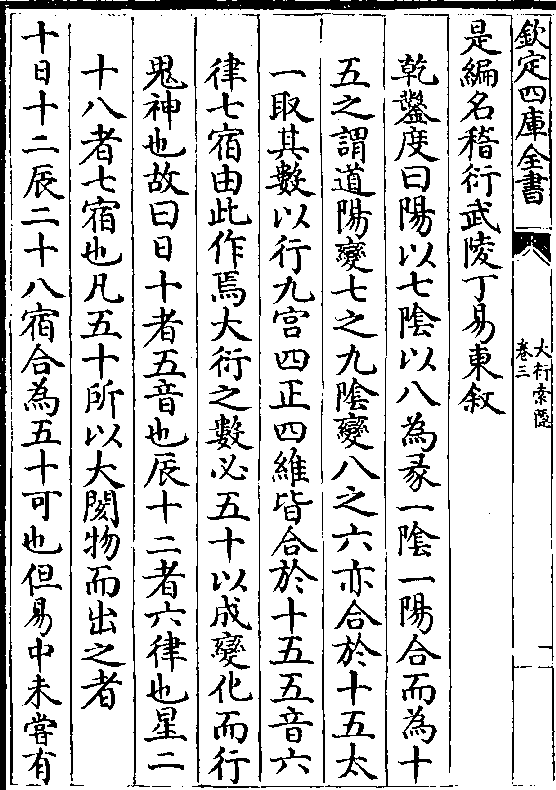 欽定四庫全書
大衍索隱
卷三
一
是編名稽衍武陵丁易東叙
乾鑿度曰陽以七陰以八為彖一陰一陽合而為十
五之謂道陽變七之九陰變八之六亦合於十五太
一取其數以行九宫四正四維皆合於十五五音六
律七宿由此作焉大衍之數必五十以成變化而行
鬼神也故曰日十者五音也辰十二者六律也星二
十八者七宿也凡五十所以大閡物而出之者
十日十二辰二十八宿合為五十可也但易中未嘗有